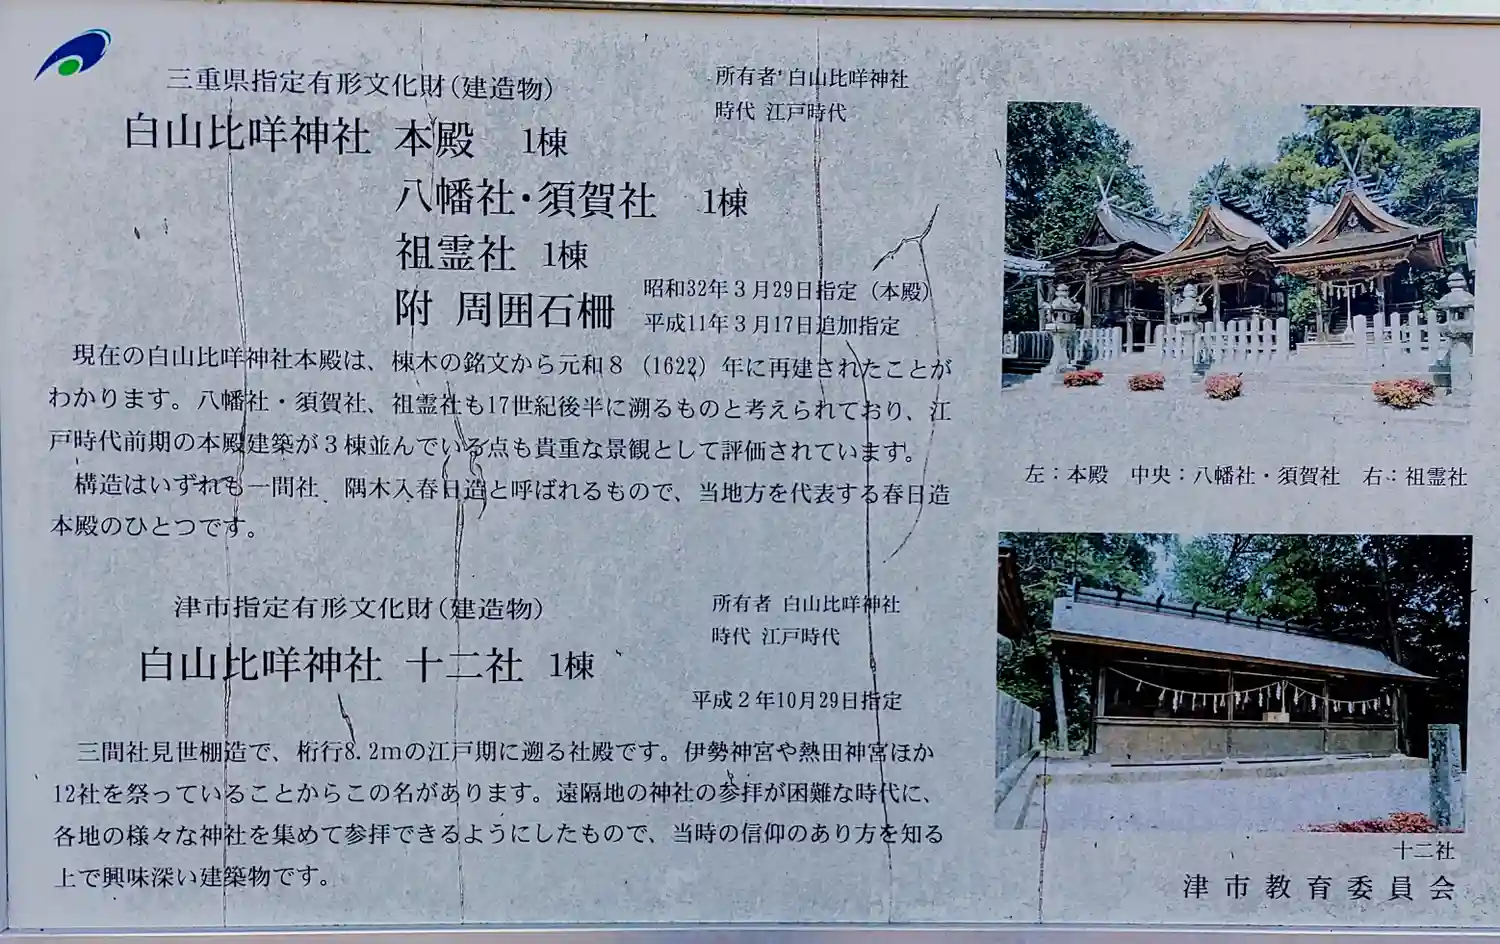 三重県指定有形文化財(建造物)
所有者 白山比咩神社
時代 江戸時代
白山比咩神社 本殿 1棟
八幡社・須賀社 1棟
祖霊社 1棟
附 周囲石柵
昭和32年3月29日指定(本殿)
平成11年3月17日追加指定
現在の白山比咩神社本殿は、棟木の銘文から元和8(1622)年に再建されたことが
わかります。八幡社・須賀社、祖霊社も17世紀後半に溯るものと考えられており、江
戸時代前期の本殿建築が3棟並んでいる点も貴重な景観として評価されています。
構造はいずれも一間社、隅木入春日造と呼ばれるもので、当地方を代表する春日造
本殿のひとつです。
津市指定有形文化財(建造物)
所有者 白山比咩神社
時代 江戸時代
白山比咩神社 十二社 1棟
平成2年10月29日指定
三間社見世棚造で、桁行8.2mの江戸期に遡る社殿です。伊勢神宮や熱田神宮ほか
12社を祭っていることからこの名があります。遠隔地の神社の参拝が困難な時代に、
各地の様々な神社を集めて参拝できるようにしたもので、当時の信仰のあり方を知る
上で興味深い建築物です。
左:本殿 中央:八幡社・須賀社 右:祖霊社
十二社
津市教育委員会